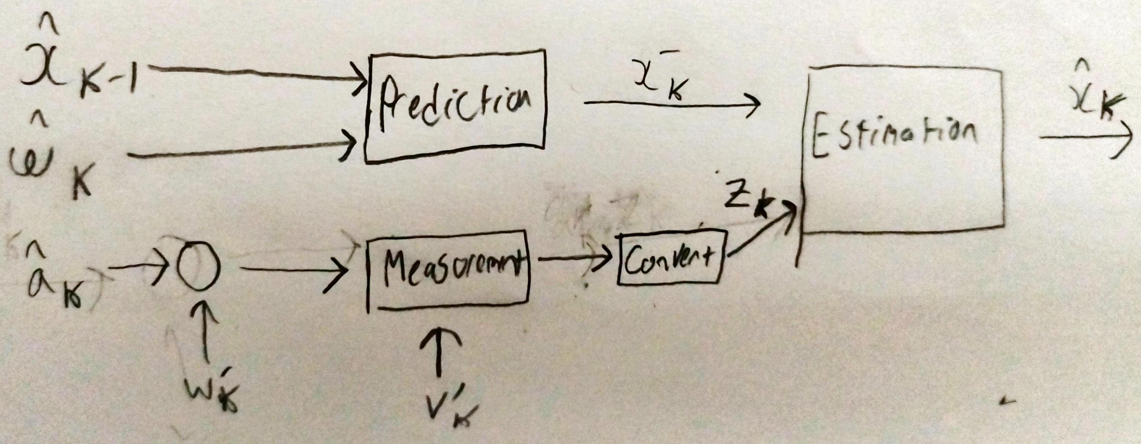 x̂ₖ₋₁
Prediction
x̄ₖ
Estimation
x̂ₖ
ω̂ₖ
Zₖ
âₖ
Measurement
Convert
w′ₖ
v′ₖ